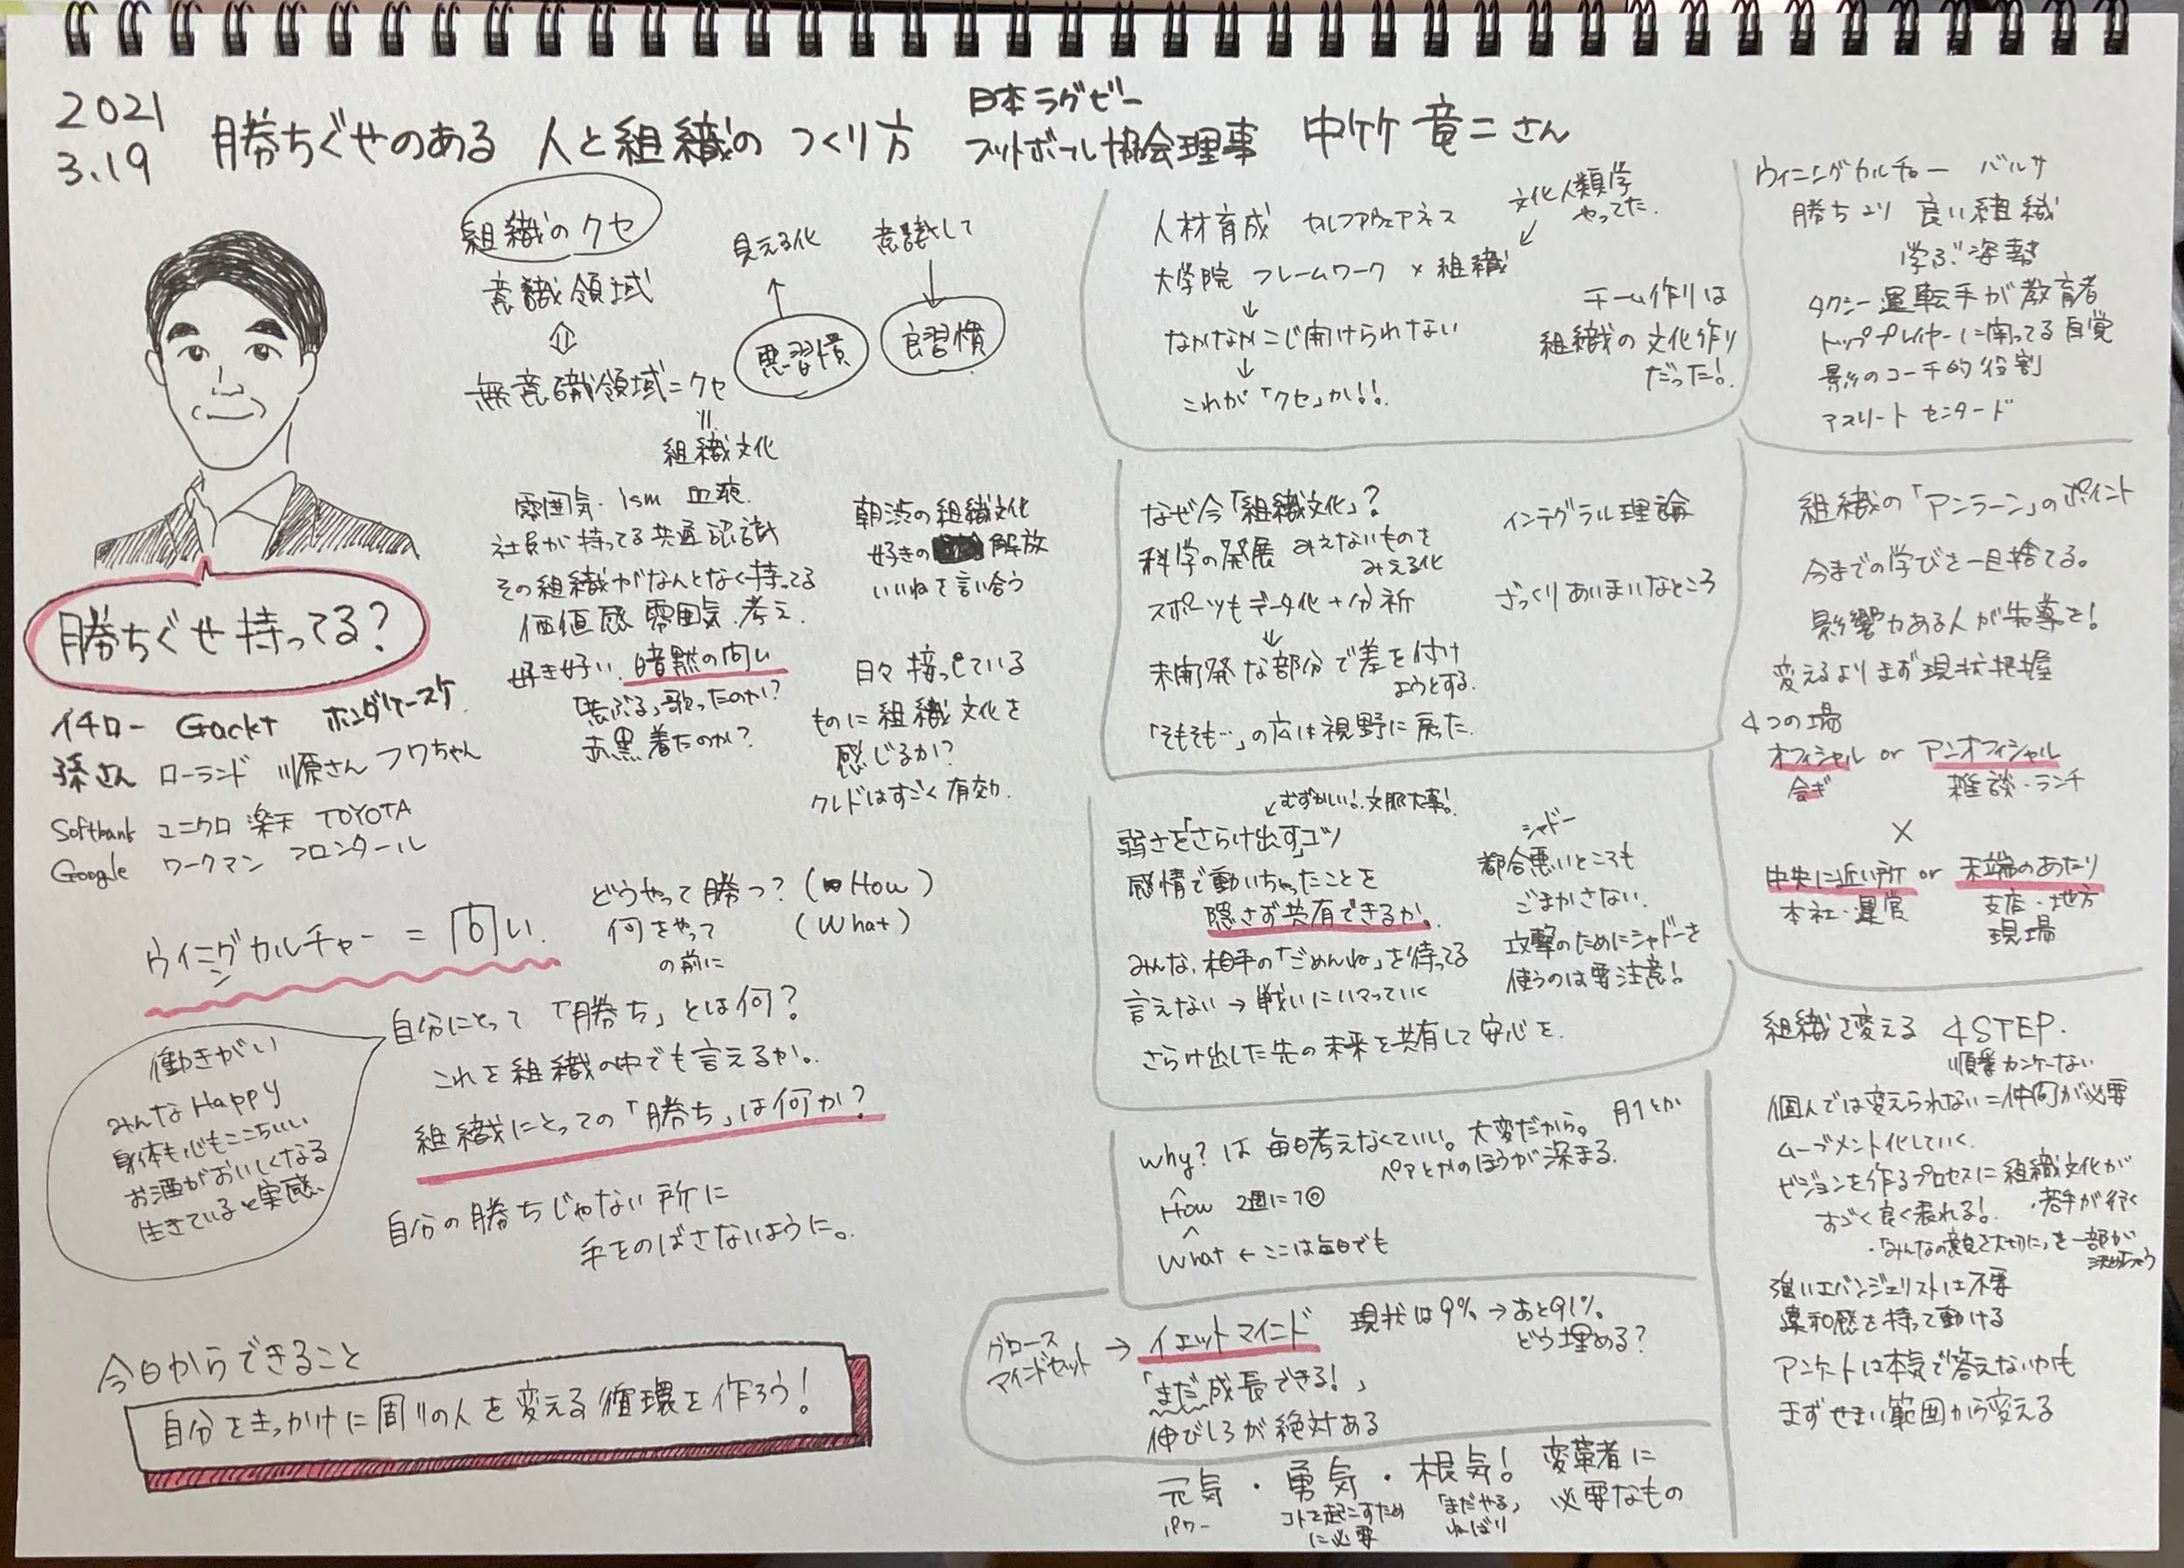 2021
3.19
勝ちぐせのある 人と組織の つくり方
日本ラグビー
フットボール協会理事 中竹 竜二さん
勝ちぐせ持ってる?
イチロー Gackt ホンダケースケ
孫さん ローランド 川原さん フワちゃん
Softbank ユニクロ 楽天 TOYOTA
Google ワークマン フロンターレ
組織のクセ
意識領域
⇕
無意識領域=クセ
=
組織文化
見える化
↑
悪習慣
意識して
↓
良習慣
雰囲気・ism 血液
社員が持ってる共通認識
その組織がなんとなく持ってる
価値感 雰囲気 考え
好き好い 暗黙の問い
「荒ぶる」歌ったのか?
赤黒着たのか?
朝渋の組織文化
好きの 解放
いいねを言い合う
日々接している
ものに組織文化を
感じるか?
クレドはすごく有効.
ウィニングカルチャー = 問い.
どうやって勝つ? (How)
何をやって (What)
の前に
自分にとって「勝ち」とは何?
これを組織の中でも言えるか.
組織にとっての「勝ち」は何か?
自分の勝ちじゃない所に
手をのばさないように。
働きがい
みんなHappy
身体も心もここちいい
お酒がおいしくなる
生きていると実感
今日からできること
自分をきっかけに周りの人を変える循環を作ろう!
人材育成 セルフアウェアネス
文化人類学
やってた.
大学院 フレームワーク × 組織
↓
なかなかこじ開けられない
↓
これが「クセ」か!!
チーム作りは
組織の文化作り
だった!
なぜ今「組織文化」?
科学の発展 みえないものを
みえる化
スポーツもデータ化+分析
↓
未開発な部分で差を付け
ようとする.
「そもそも…」の広い視野に戻った.
インテグラル理論
ざっくりあいまいなところ
むずかしい!文脈大事!
弱さを「さらけ出す」コツ
感情で動いちゃったことを
隠さず共有できるか.
みんな、相手の「ごめんね」を待ってる
言えない→戦いにハマっていく
さらけ出した先の未来を共有して安心を.
シャドー
都合悪いところも
ごまかさない.
攻撃のためにシャドーを
使うのは要注意!
why? は 毎日考えなくていい。大変だから。月1とか
ペアとかのほうが深まる.
How 2週に1回
What ← ここは毎日でも
グロース
マインドセット
→ イェットマインド 現状は9%→あと91%.
どう埋める?
「まだ成長できる!」
伸びしろが絶対ある
元気・勇気・根気! 変革者に
必要なもの
パワー
コトを起こすため
に必要
「まだやる」
ねばり
ウィニングカルチャー バルサ
勝ちより 良い組織
学ぶ姿勢
タクシー運転手が教育者
トッププレイヤーに関ってる自覚
影のコーチ的役割
アスリート センタード
組織の「アンラーン」のポイント
今までの学びを一旦捨てる。
影響力ある人が先導を!
変えるよりまず現状把握
4つの場
オフィシャル or アンオフィシャル
会ぎ 雑談・ランチ
×
中央に近い所 or 末端のあたり
本社・運営 支店・地方
現場
組織を変える 4STEP.
順番カンケーない
個人では変えられない=仲間が必要
ムーブメント化していく.
ビジョンを作るプロセスに組織文化が
すごく良く表れる!・若手が行く
・「みんなの意見を大切に」を一部が
決めちゃう
強いエバンジェリストは不要
違和感を持って動ける
アンケートは本気で答えないかも
まずせまい範囲から変える